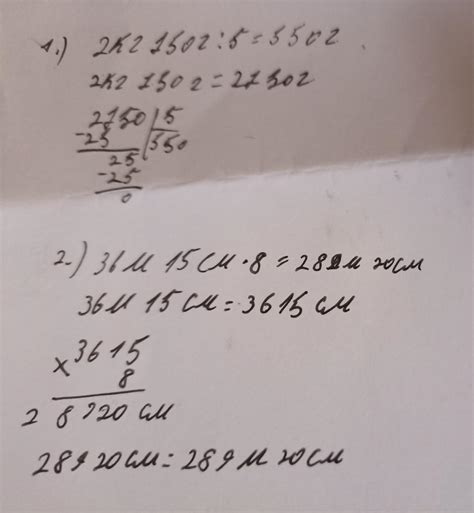 1.) 2кг 750г : 5 = 550г
2кг 750г = 2750г
2750 | 5
-25 | 550
25
-25
0
2.) 36м 15см · 8 = 289м 20см
36м 15см = 3615см
× 3615
8
28920см
28920см = 289м 20см